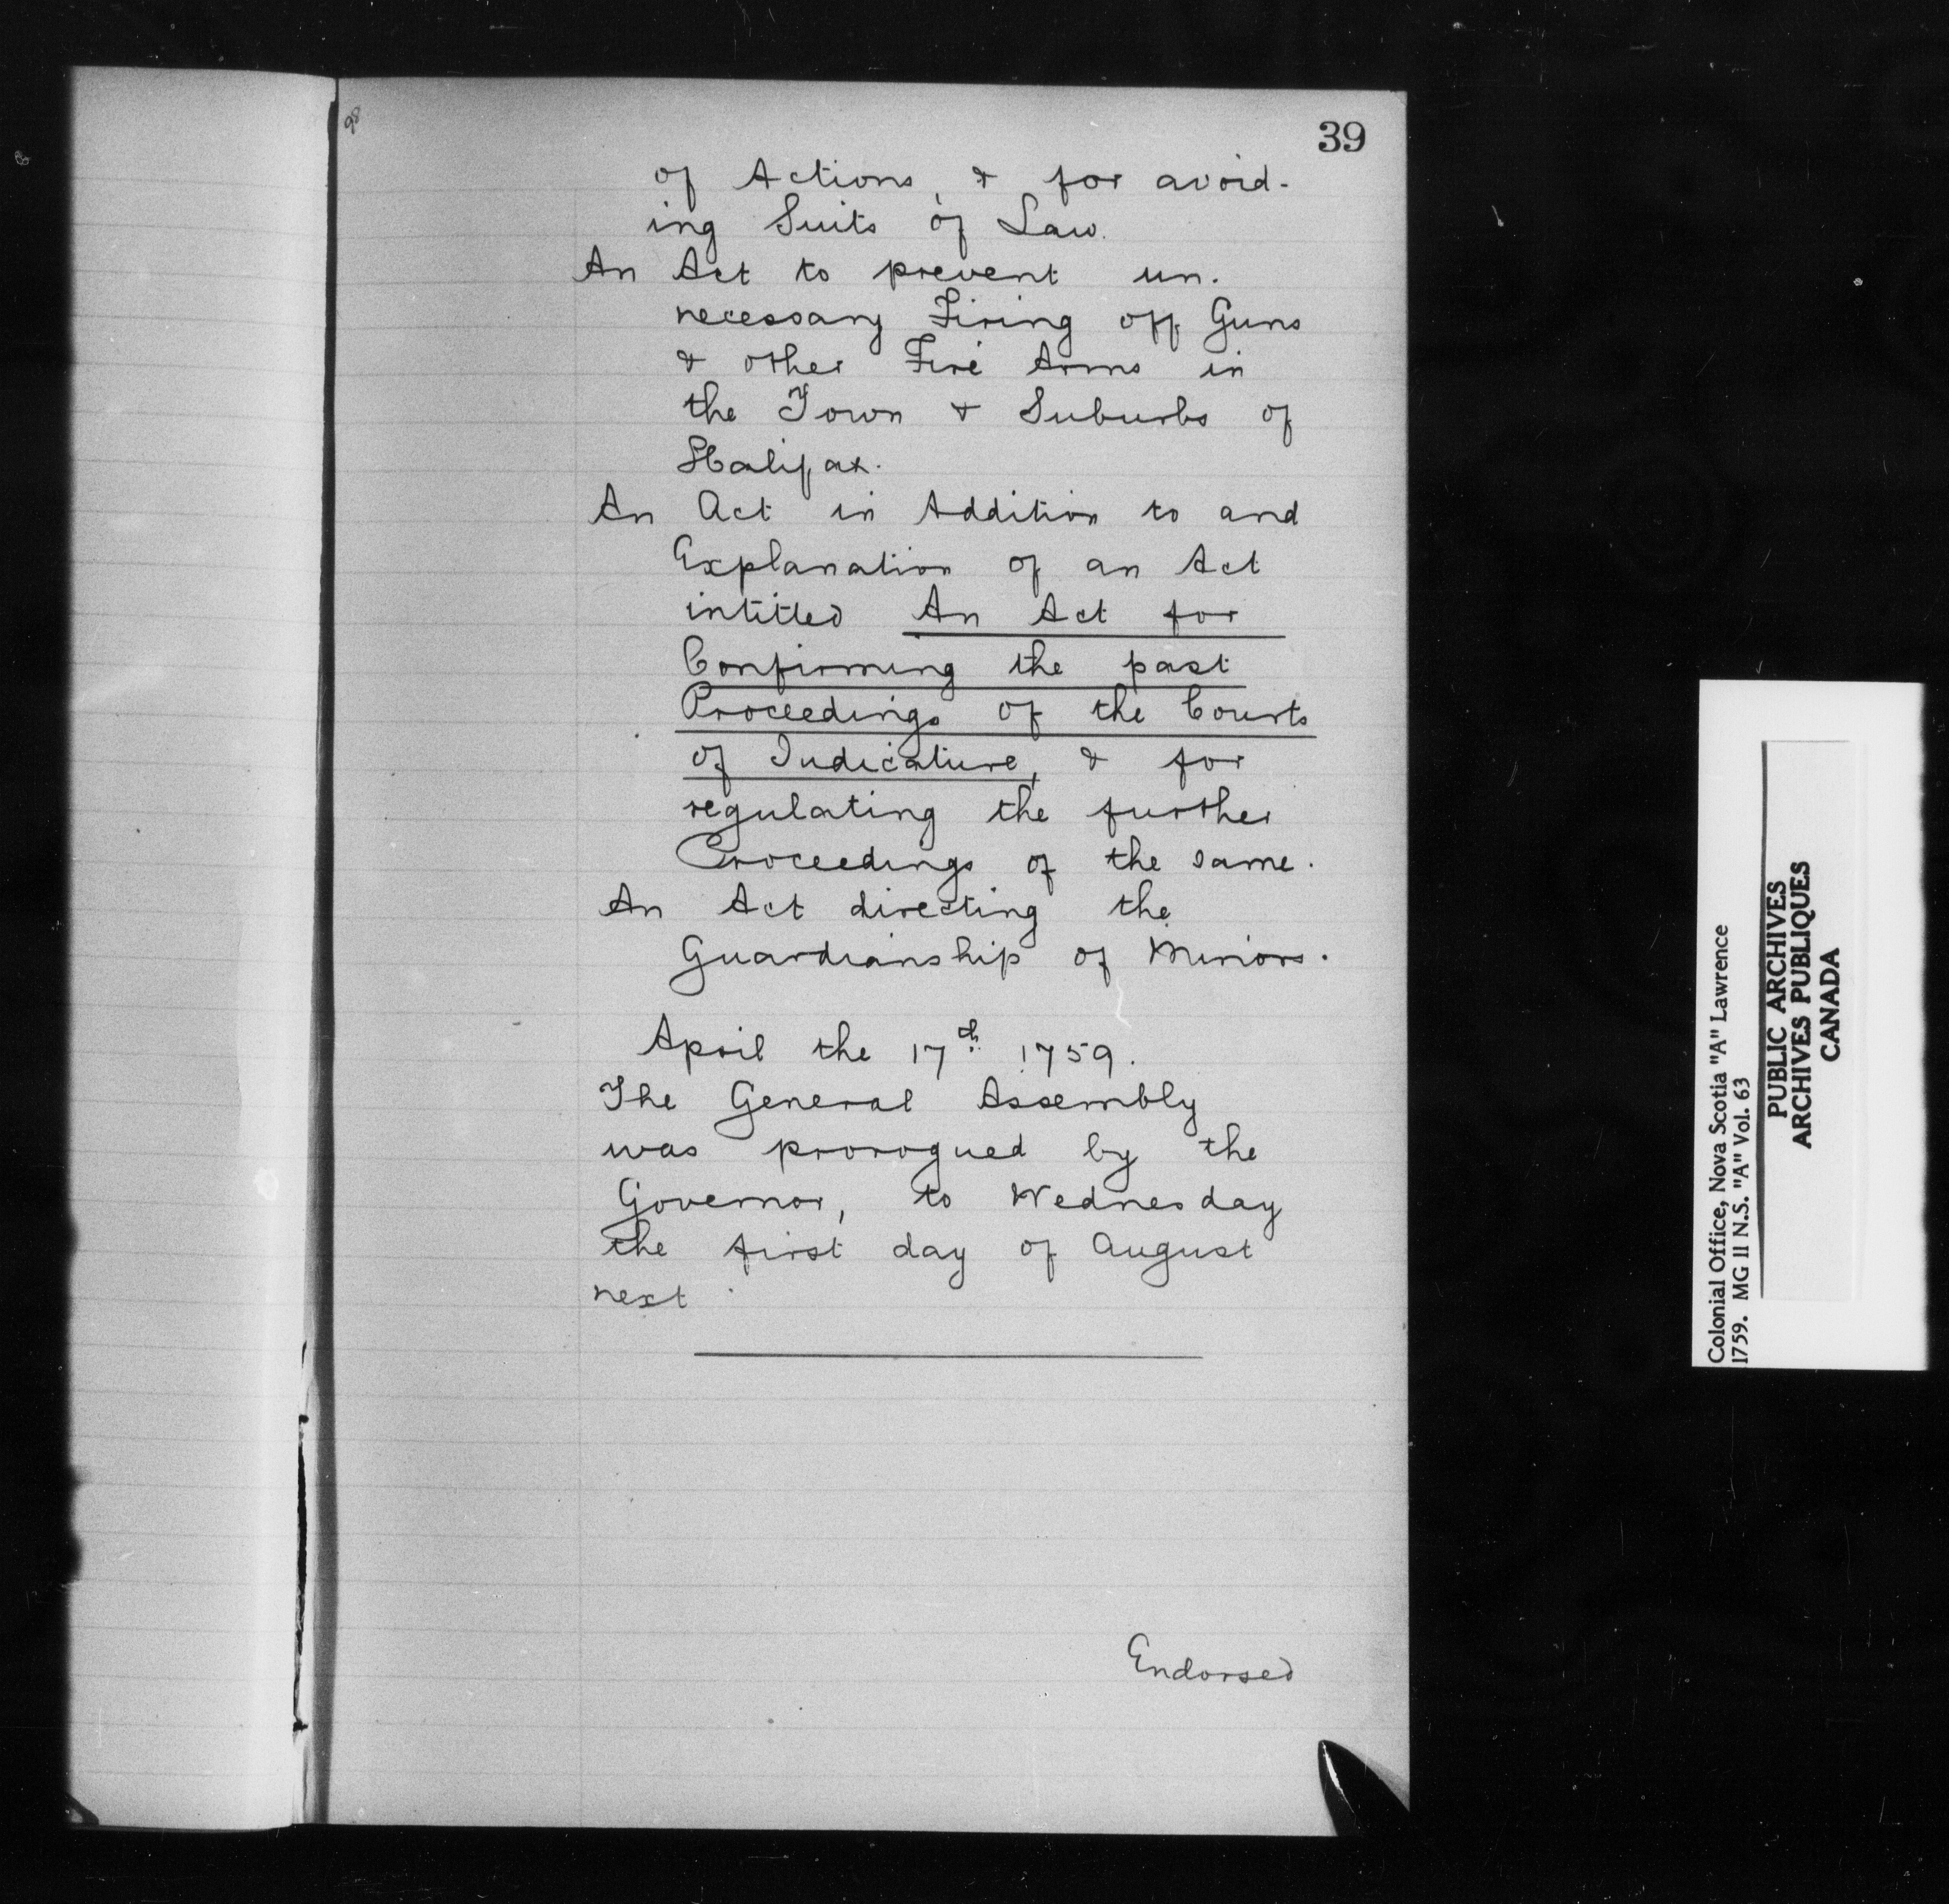 39
of Actions, & for avoid-
ing Suits of Law.
An Act to prevent un-
necessary Firing off Guns
& other Fire Arms in
the Town & Suburbs of
Halifax.
An Act in Addition to and
Explanation of an Act
intitled An Act for
Confirming the past
Proceedings of the Courts
of Judicature, & for
regulating the further
Proceedings of the same.
An Act directing the
Guardianship of Minors.
April the 17th 1759.
The General Assembly
was prorogued by the
Governor, to Wednesday
the first day of August
next.
Endorsed
Colonial Office, Nova Scotia "A" Lawrence
1759. MG 11 N.S. "A" Vol. 63
PUBLIC ARCHIVES
ARCHIVES PUBLIQUES
CANADA